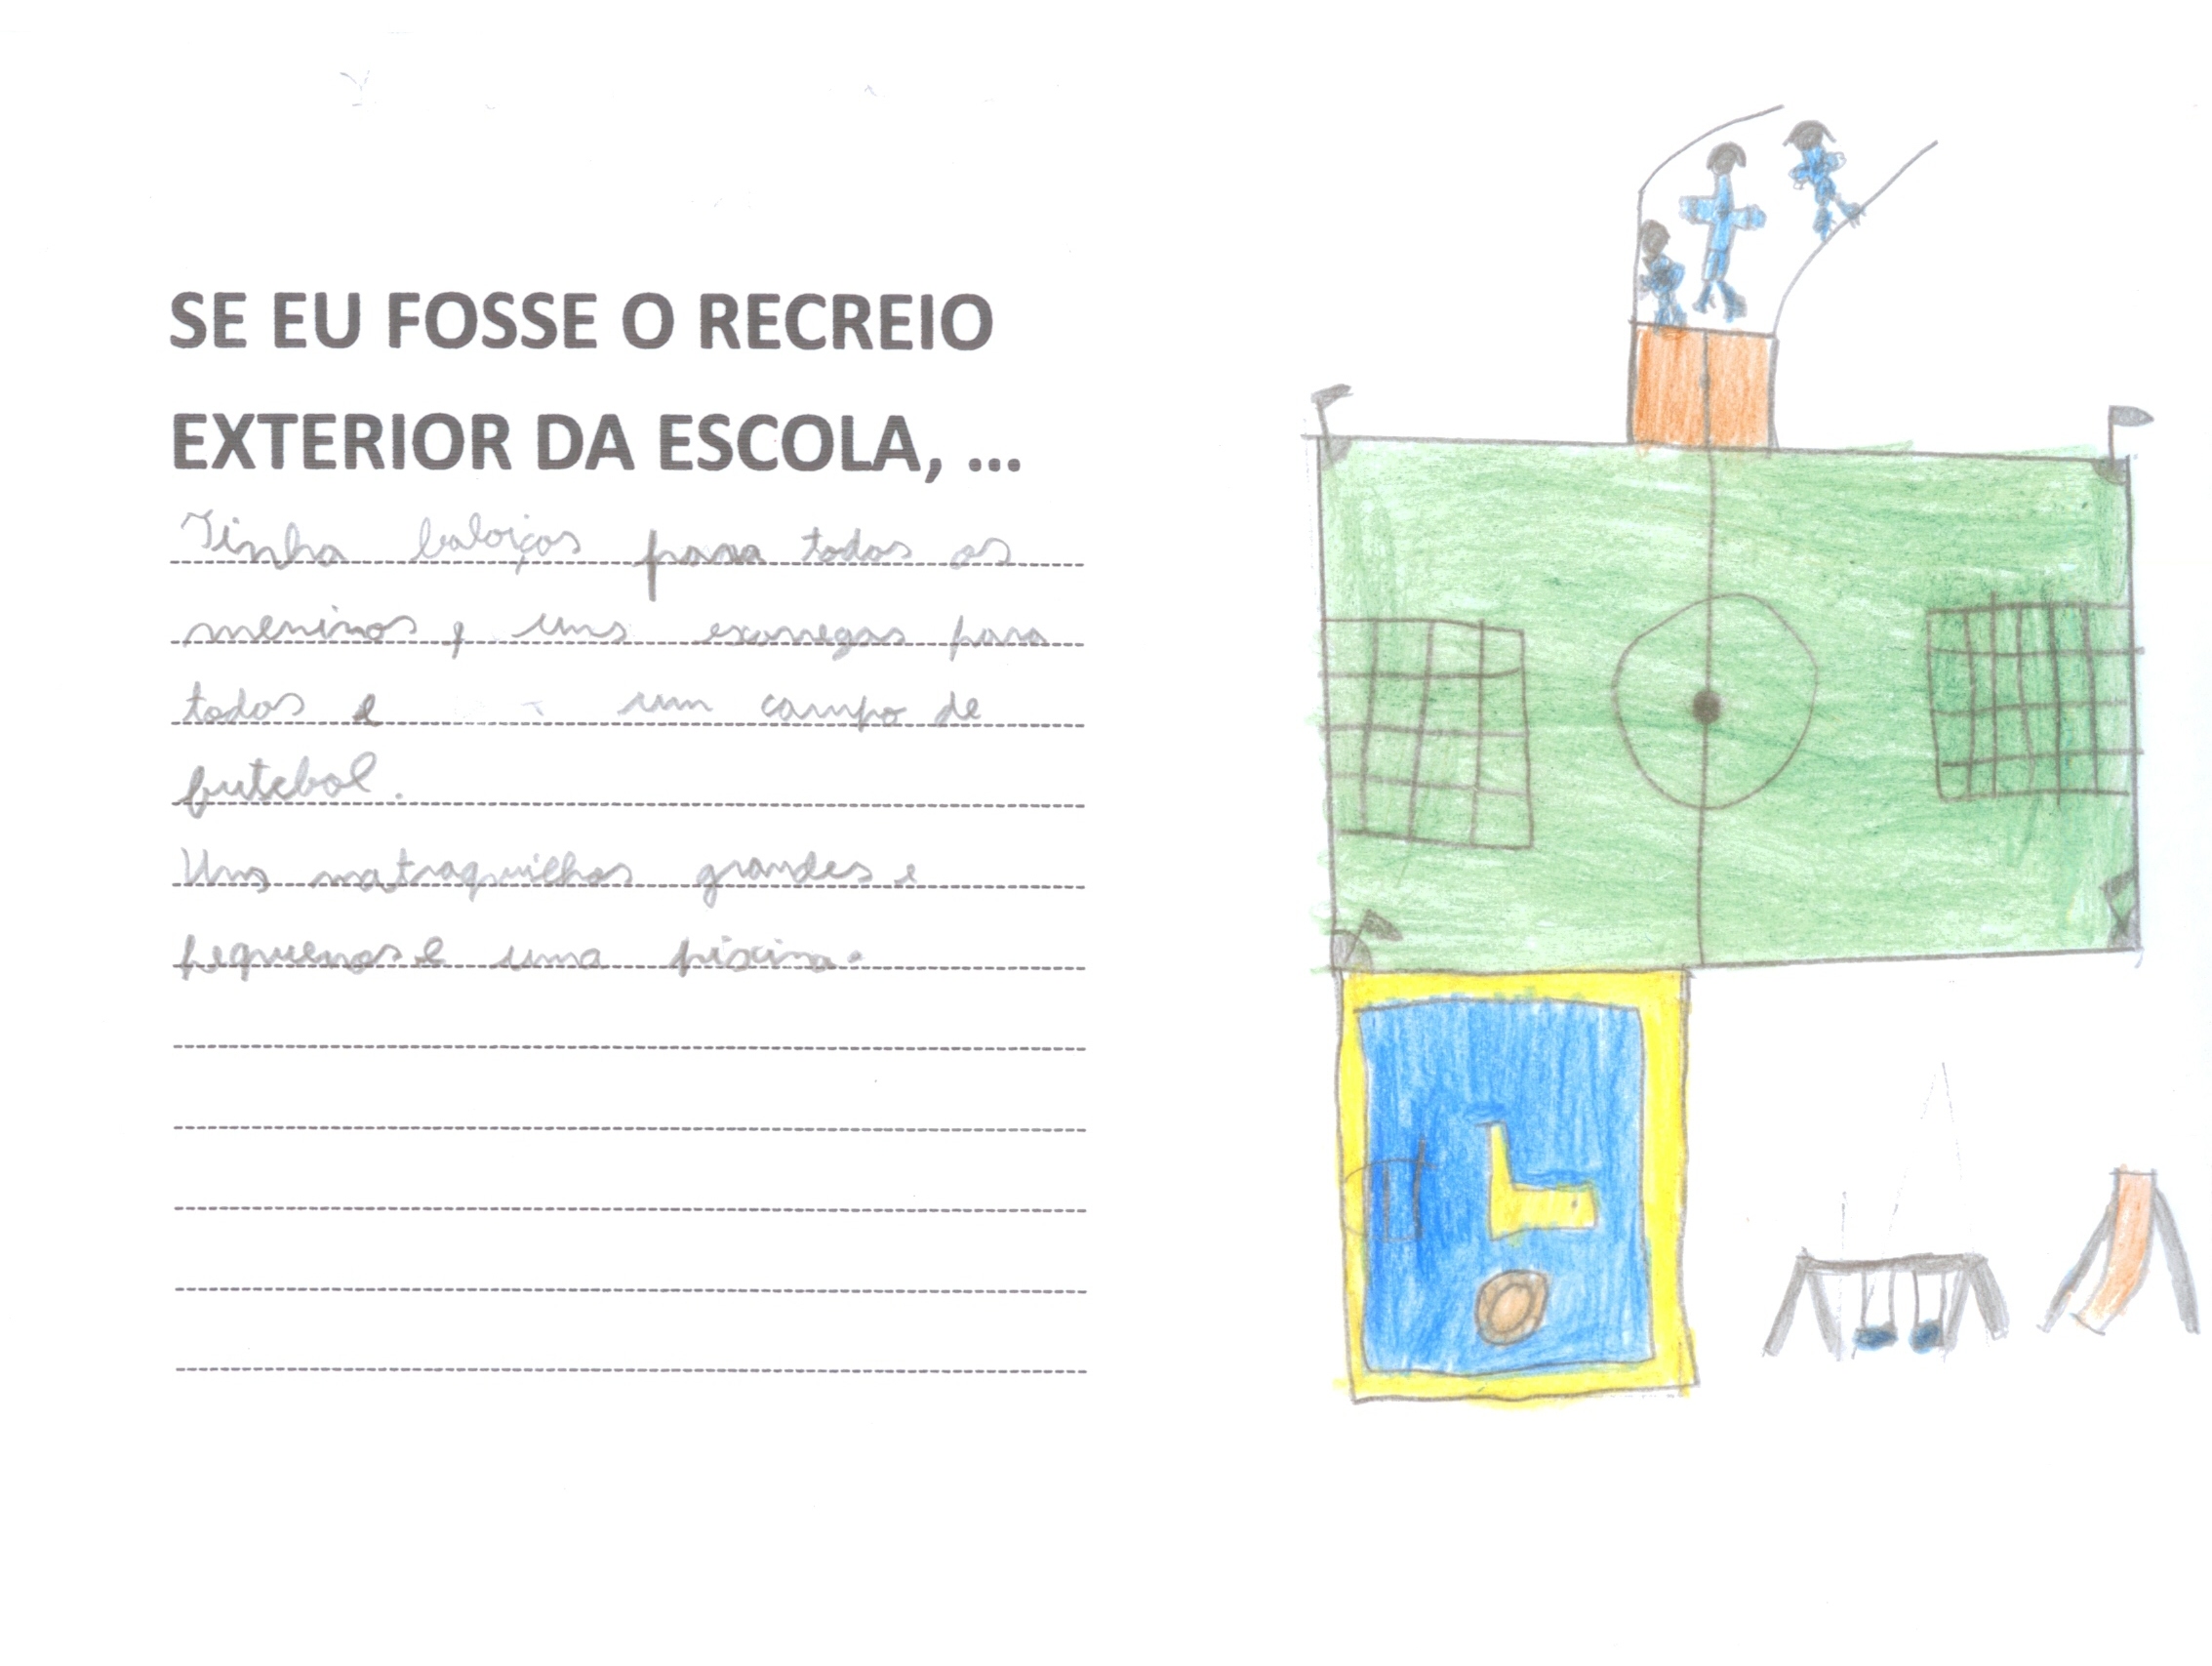 SE EU FOSSE O RECREIO
EXTERIOR DA ESCOLA, ...
Tinha baloiços para todos os
meninos, uns exorregas para
todos e um campo de
futebol.
Uns matraquilhos grandes e
pequenos e uma piscina.